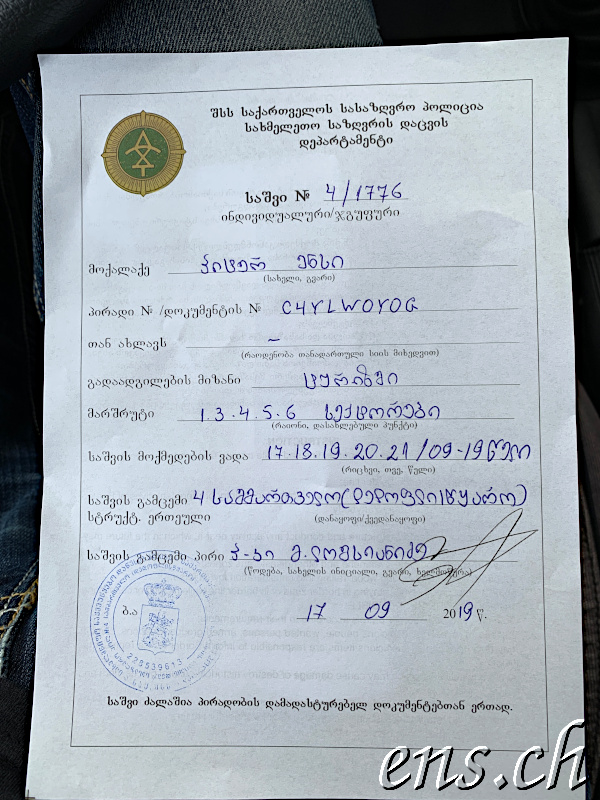 შსს საქართველოს სასაზღვრო პოლიცია
სახმელეთო საზღვრის დაცვის
დეპარტამენტი
საშვი № 4/1776
ინდივიდუალური/ჯგუფური
მოქალაქე პიტერ ენსი
(სახელი, გვარი)
პირადი № /დოკუმენტის № C4YLW0Y0G
თან ახლავს –
(რაოდენობა თანადართული სიის მიხედვით)
გადაადგილების მიზანი ტურიზმი
მარშრუტი 1.3.4.5.6 სექტორები
(რაიონი, დასახლებული პუნქტი)
საშვის მოქმედების ვადა 17.18.19.20.21/09-19წელი
(რიცხვი, თვე, წელი)
საშვის გამცემი 4 სამმართველო(დედოფლისწყარო)
სტრუქტ. ერთეული (დანაყოფი/ქვედანაყოფი)
საშვის გამცემი პირი
(წოდება, სახელის ინიციალი, გვარი, ხელმოწერა)
ბ.ა 17 09 2019 წ.
228539613
საშვი ძალაშია პირადობის დამადასტურებელ დოკუმენტებთან ერთად.
ens.ch